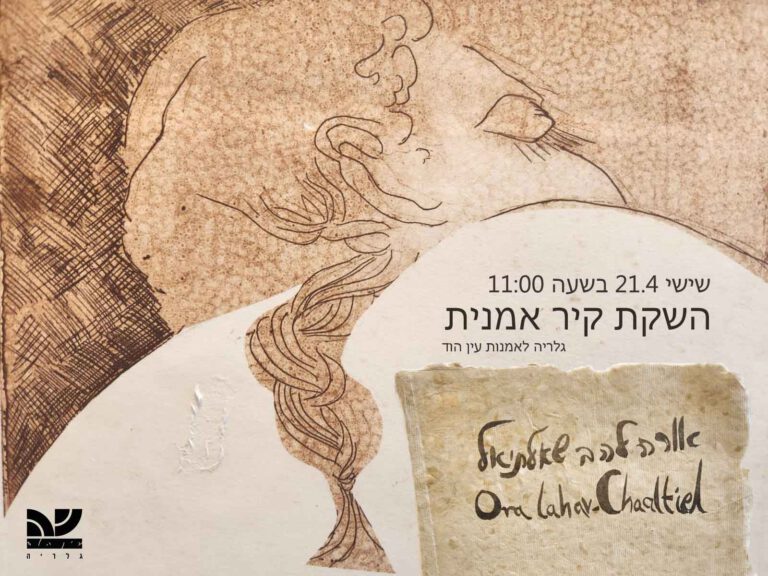 שישי 21.4 בשעה 11:00
השקת קיר אמנית
גלריה לאמנות עין הוד
אורה להב שאלתיאל
Ora Lahav-Chaaltiel
עין הוד
גלריה